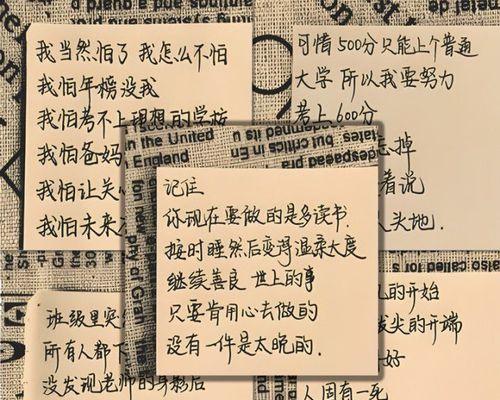 我当然怕了 我怎么不怕
我怕年榜没我
我怕考不上理想的学校
我怕爸妈
我怕让关心
我怕未来
可惜500分只能上个普通
大学 所以我要努力
考上600分
忘掉
着说
人头地.
in the United
England
记住
你现在要做的是多读书.
按时睡然后变得温柔大度
继续善良 世上的事
只要肯用心去做的
没有一件是太晚的.
班级里突
所有人都下
没发现老师的身影后
的开始
拔尖的开端
好
人固有一死